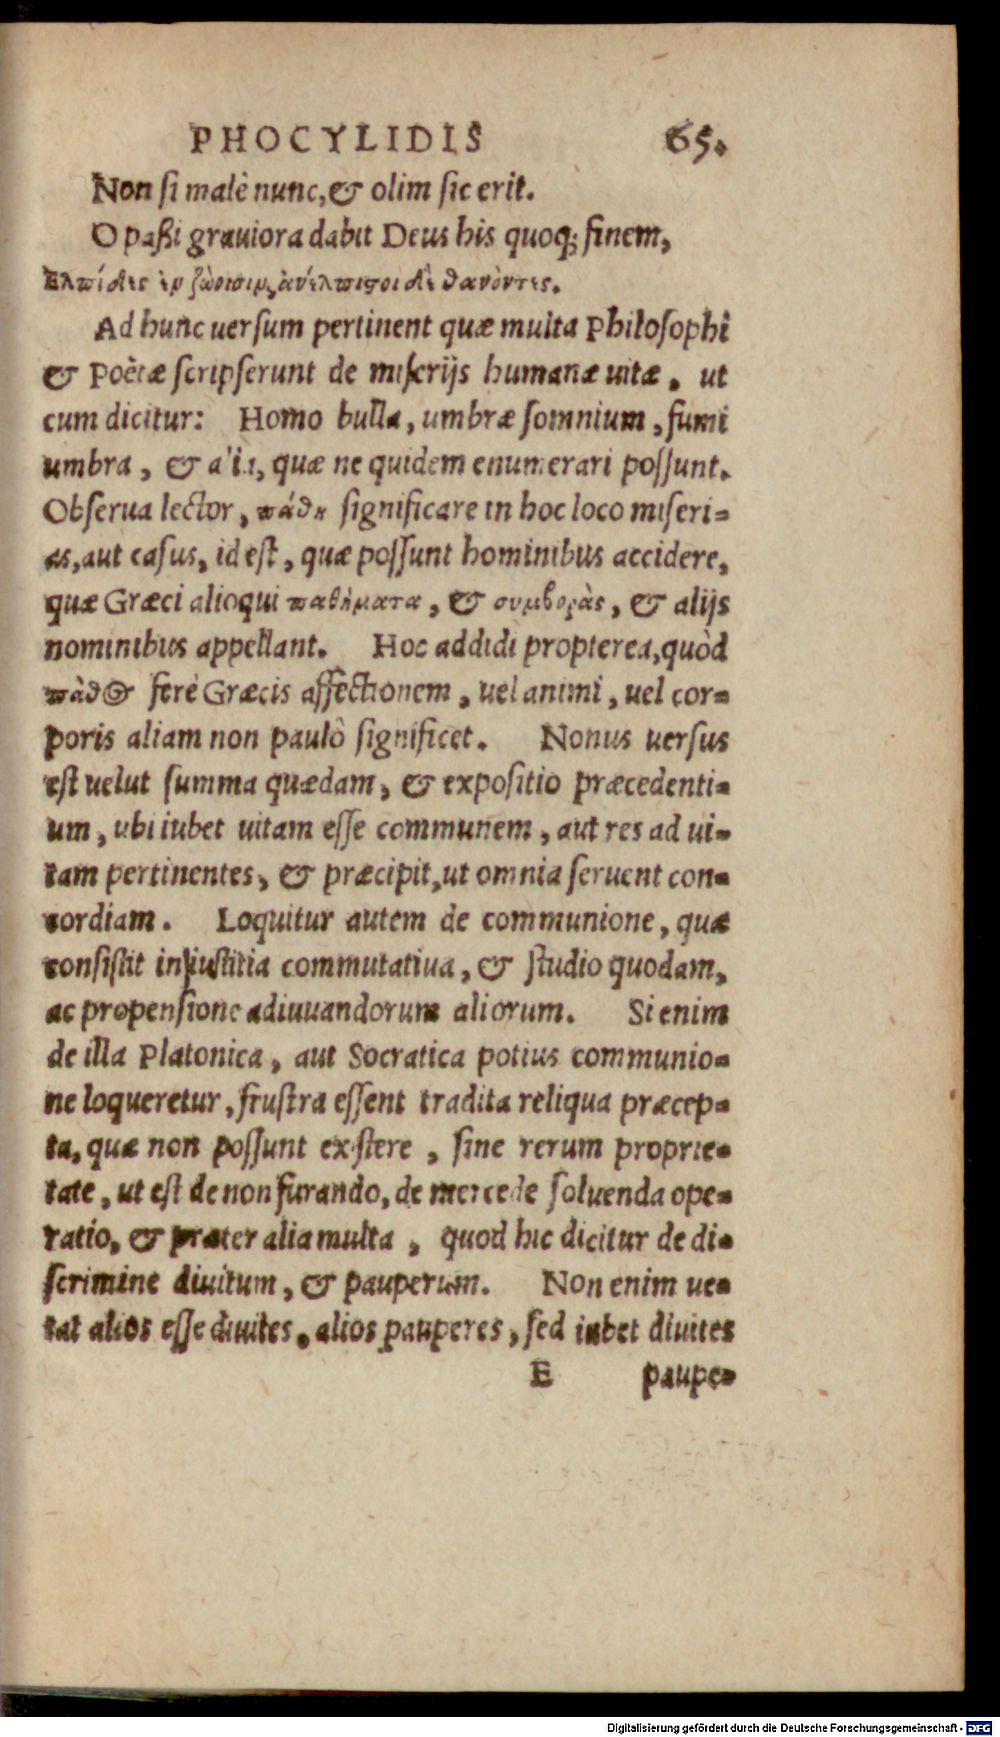 PHOCYLIDIS 65.
Non si malè nunc, & olim sic erit.
O paßi grauiora dabit Deus his quoq; finem,
Ελπίδες ἐν ζωοῖσιν, ἀνέλπιστοι δὲ θανόντες.
Ad hunc uersum pertinent quæ multa Philosophi
& Poëtæ scripserunt de miserijs humanæ uitæ. ut
cum dicitur: Homo bulla, umbræ somnium, fumi
umbra, & alia, quæ ne quidem enumerari possunt.
Obserua lector, πάθη significare in hoc loco miseri-
as, aut casus, id est, quæ possunt hominibus accidere,
quæ Græci alioqui παθήματα, & συμφορὰς, & alijs
nominibus appellant. Hoc addidi propterea, quòd
πάθος ferè Græcis affectionem, uel animi, uel cor-
poris aliam non paulò significet. Nonus uersus
est uelut summa quædam, & expositio præcedenti-
um, ubi iubet uitam esse communem, aut res ad ui-
tam pertinentes, & præcipit, ut omnia seruent con-
cordiam. Loquitur autem de communione, quæ
consistit in iustitia commutatiua, & studio quodam,
ac propensione adiuuandorum aliorum. Si enim
de illa Platonica, aut Socratica potius communio-
ne loqueretur, frustra essent tradita reliqua præcep-
ta, quæ non possunt existere, sine rerum proprie-
tate, ut est de non furando, de mercede soluenda ope-
ratio, & præter alia multa, quod hic dicitur de di-
scrimine diuitum, & pauperum. Non enim ue-
tat alios esse diuites, alios pauperes, sed iubet diuites
E paupe-
Digitalisierung gefördert durch die Deutsche Forschungsgemeinschaft - DFG